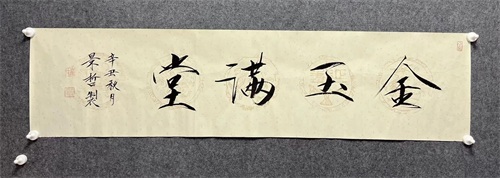 金玉满堂
辛丑秋月
哲製